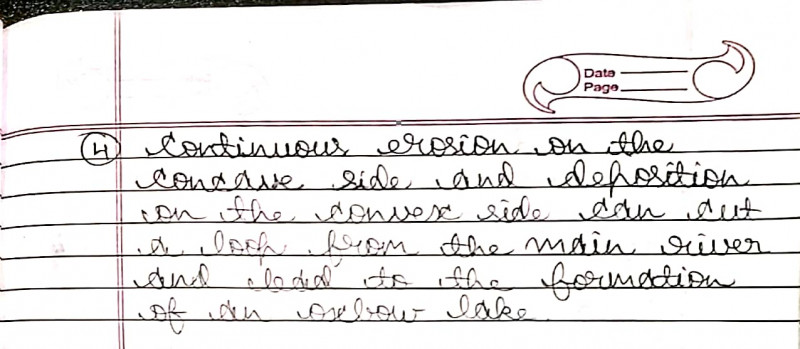 Date
Page
4 Continuous erosion on the
concave side and deposition
on the convex side can cut
a loop from the main river
and lead to the formation
of an oxbow lake.